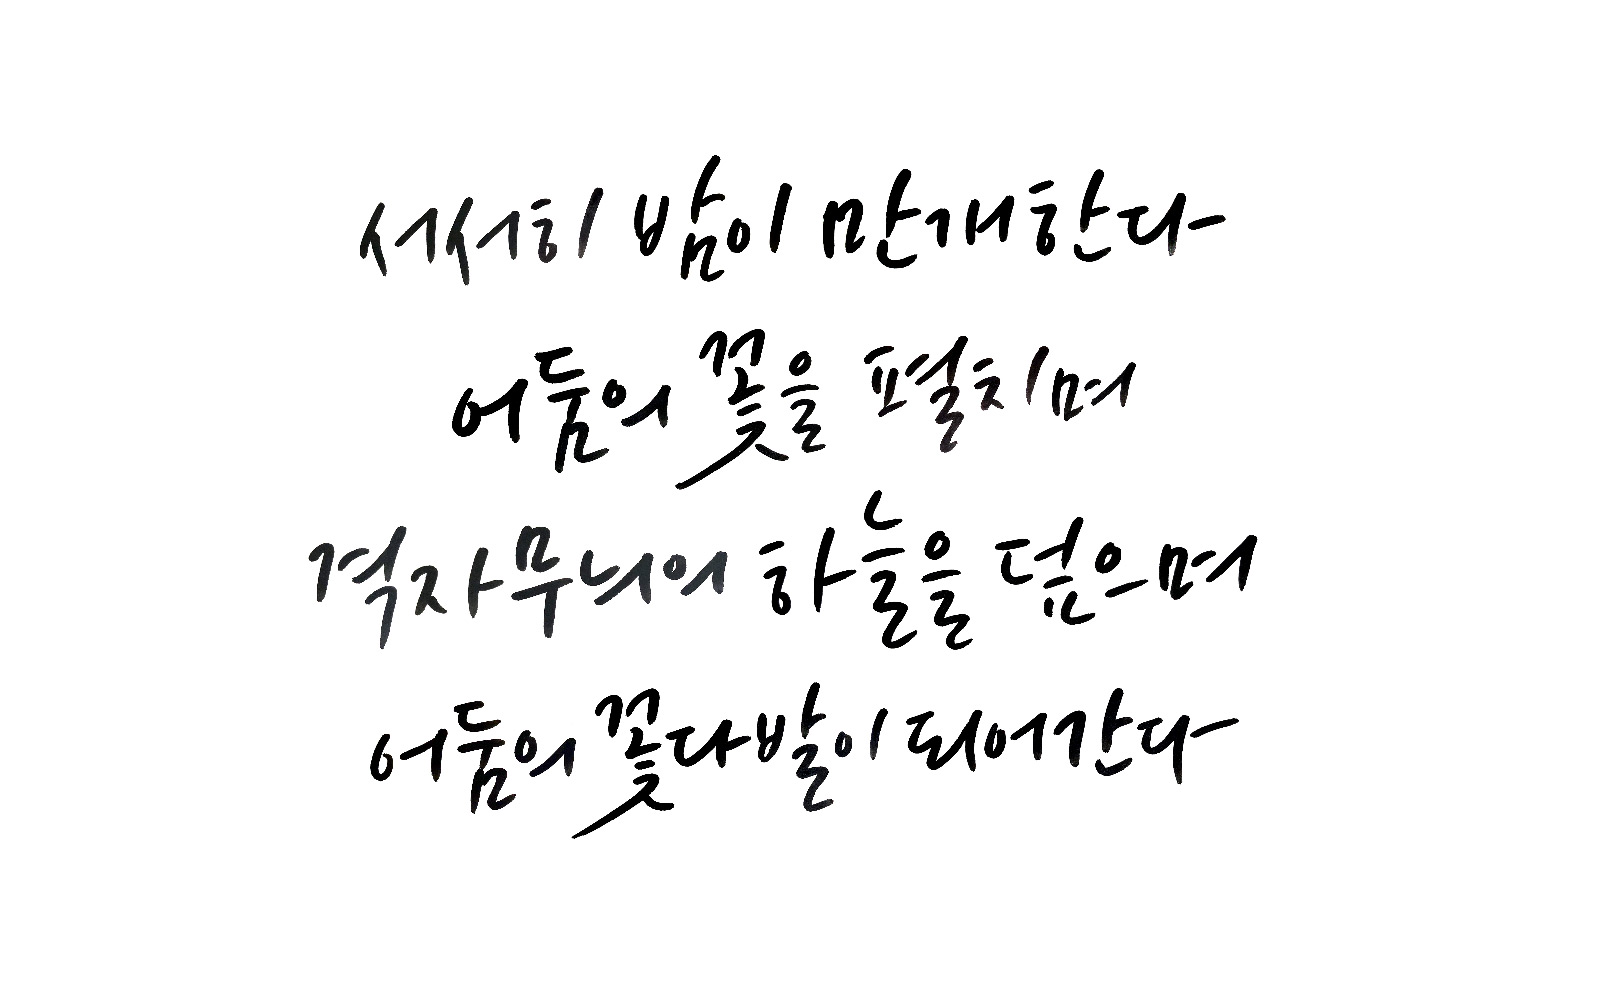 서서히 밤이 만개한다
어둠의 꽃을 펼치며
격자무늬의 하늘을 덮으며
어둠의 꽃다발이 되어간다